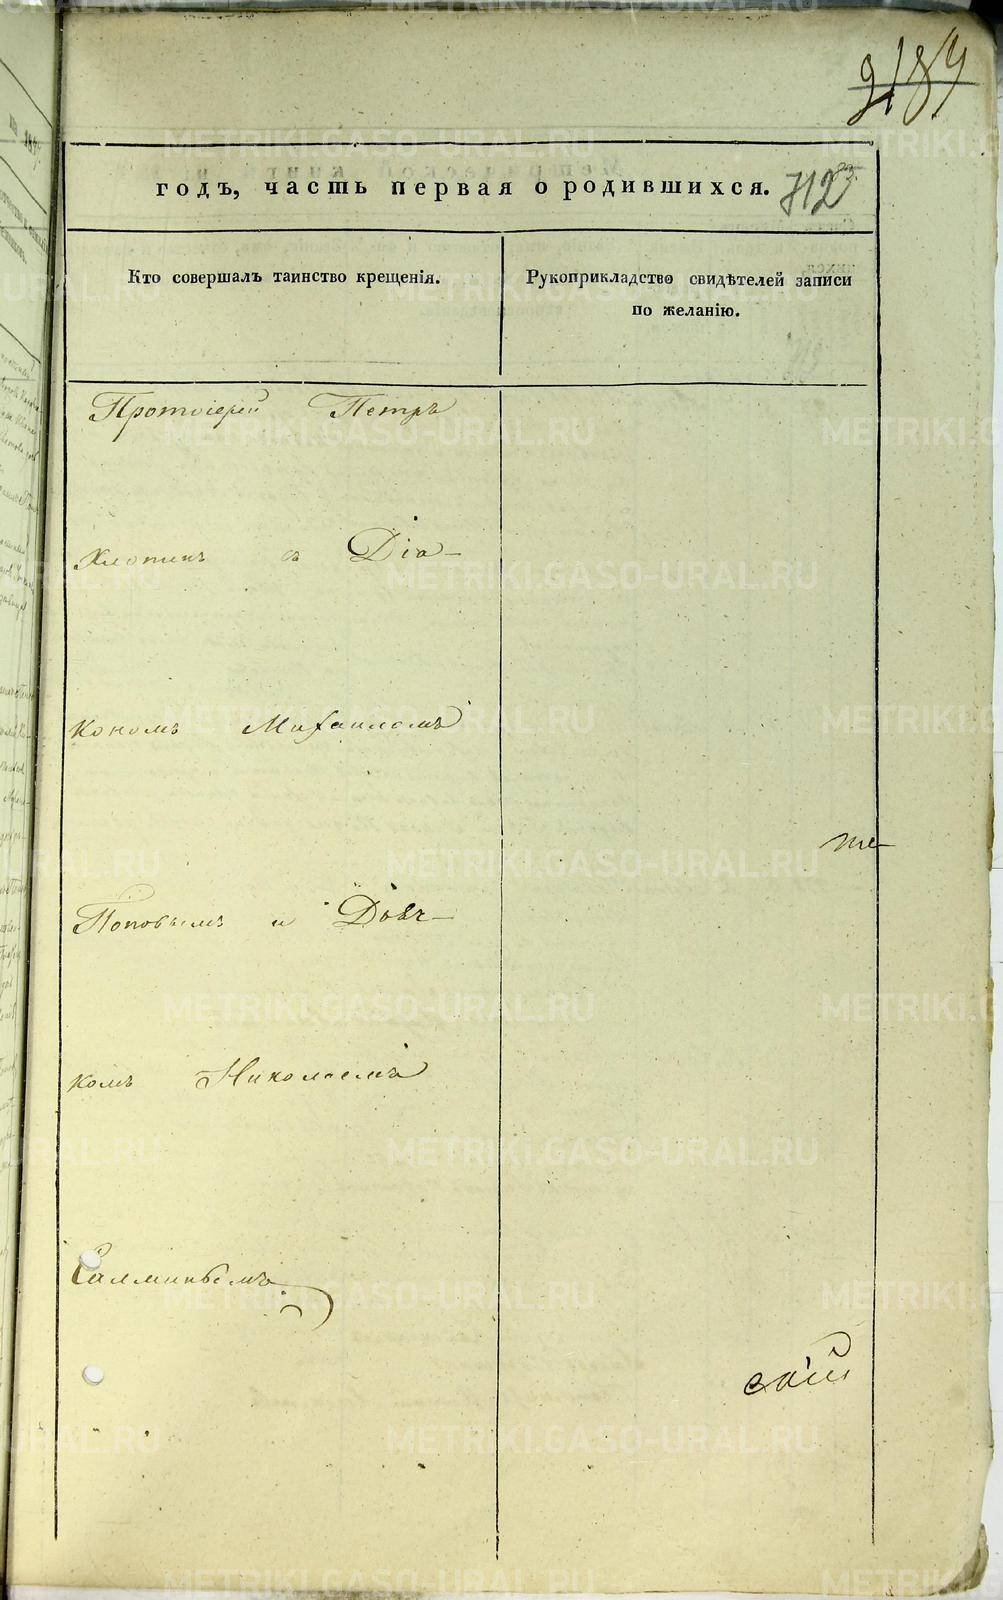 712
годъ, часть первая о родившихся.
Кто совершалъ таинство крещенія.
Рукоприкладство свидѣтелей записи
по желанію.
Протоіерей Петръ
Хлопинъ съ Діа-
кономъ Михаиломъ
те-
Поповымъ и Дьяч-
комъ Николаемъ
Салминымъ
METRIKI.GASO-URAL.RU